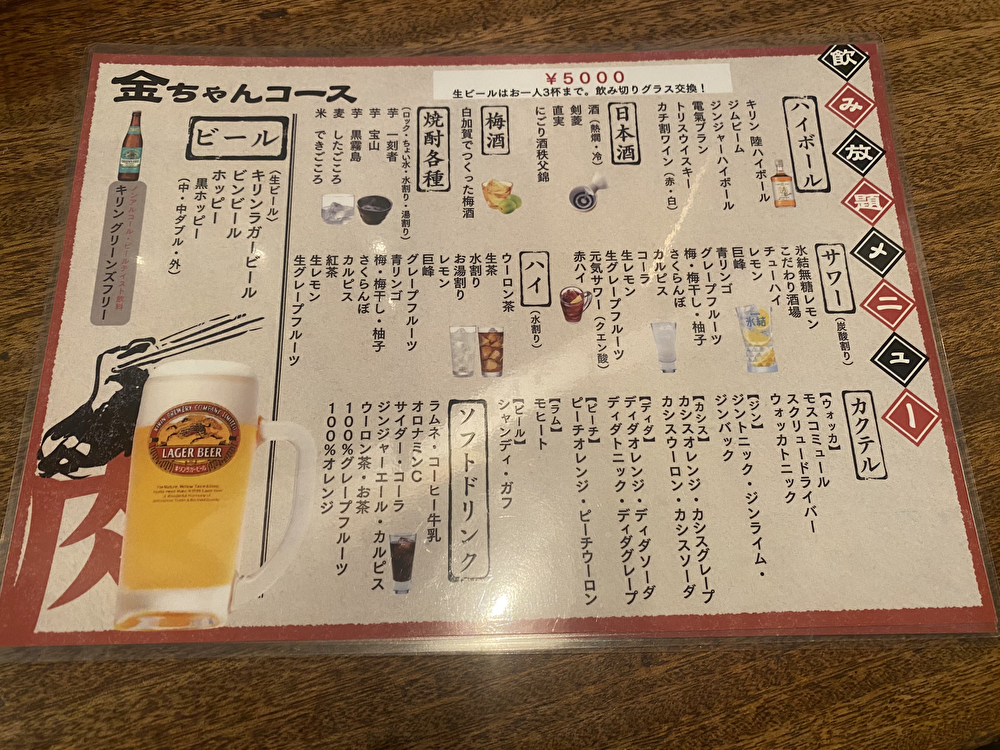 飲み放題メニュー
金ちゃんコース
￥5000
生ビールはお一人3杯まで。飲み切りグラス交換！
ハイボール
キリン 陸ハイボール
ジムビーム
ジンジャーハイボール
電氣ブラン
トリスウイスキー
カチ割ワイン（赤・白）
日本酒
酒（熱燗・冷）
剣菱
直実
にごり酒秩父錦
梅酒
白加賀でつくった梅酒
焼酎各種
（ロック・ちょい水・水割り・湯割）
芋 一刻者
芋 宝山
芋 黒霧島
麦 したごころ
米 できごころ
ビール
〈生ビール〉
キリンラガービール
ビンビール
ホッピー
黒ホッピー
（中・中ダブル・外）
ノンアルコール・ビールテイスト飲料
キリン グリーンズフリー
サワー（炭酸割り）
氷結無糖レモン
こだわり酒場
チューハイ
レモン
巨峰
青リンゴ
グレープフルーツ
梅・梅干し・柚子
さくらんぼ
コーラ
カルピス
生レモン
生グレープフルーツ
元気サワー（クエン酸）
赤ハイ
ハイ（水割り）
ウーロン茶
生茶
水割り
お湯割り
レモン
巨峰
グレープフルーツ
青リンゴ
梅・梅干し・柚子
さくらんぼ
カルピス
紅茶
生レモン
生グレープフルーツ
カクテル
【ウォッカ】
モスコミュール
スクリュードライバー
ウォッカトニック
【ジン】
ジントニック・ジンライム・
ジンバック
【カシス】
カシスオレンジ・カシスグレープ
カシスウーロン・カシスソーダ
【ディタ】
ディダオレンジ・ディダソーダ
ディダトニック・ディダグレープ
【ピーチ】
ピーチオレンジ・ピーチウーロン
【ラム】
モヒート
【ビール】
シャンディ・ガフ
ソフトドリンク
ラムネ・コーヒー牛乳
オロナミンC
サイダー・コーラ
ジンジャーエール・カルピス
ウーロン茶・お茶
100％グレープフルーツ
100％オレンジ
氷結
KIRIN BREWERY COMPANY, LIMITED
LAGER BEER
キリンラガービール